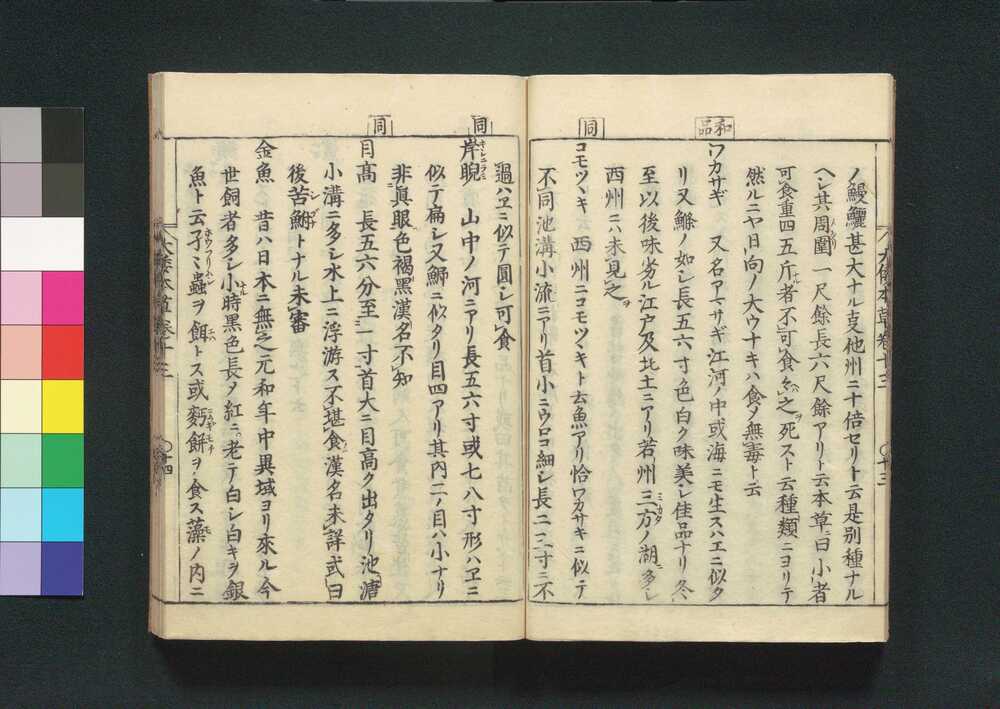 大倭本草卷十三
〇十三
ノ鰻鱺甚大ナル支他州ニ十倍セリト云是別種ナル
ヘシ其周圍一尺餘長六尺餘アリト云本草ニ曰小者
可食重四五斤者不可食食之死スト云種類ニヨリテ
然ルニヤ日向ノ大ウナキハ食メ無毒ト云
和品
ワカサギ 又名アマサギ江河ノ中或海ニモ生スハエニ似タ
リ又鰷ノ如シ長五六寸色白ク味美シ佳品ナリ冬
至以後味劣ル江戸及北土ニアリ若州三方ノ湖多シ
西州ニハ未見之
同
コモツヽキ 西州ニコモツヽキト云魚アリ恰ワカサキニ似テ
不同池溝小流ニアリ首小ニウロコ細シ長二三寸ニ不
過ハヱニ似テ圓シ可食
同
岸睨 山中ノ河ニアリ長五六寸或七八寸形ハヱニ
似テ扁シ又鯽ニ似タリ目四アリ其内二ノ目ハ小ナリ
非眞眼色褐黑漢名不知
同
目高 長五六分至一寸首大ニ目高ク出タリ池溏
小溝ニ多シ水上ニ浮游ス不堪食漢名未詳或曰
後苦鮒トナル未審
金魚 昔ハ日本ニ無之元和年中異域ヨリ來ル今
世飼者多シ小時黑色長メ紅ニ老テ白シ白キヲ銀
魚ト云孑孑蟲ヲ餌トス或麪餅ヲ食ス藻ノ内ニ
大倭本草卷十三
〇十四